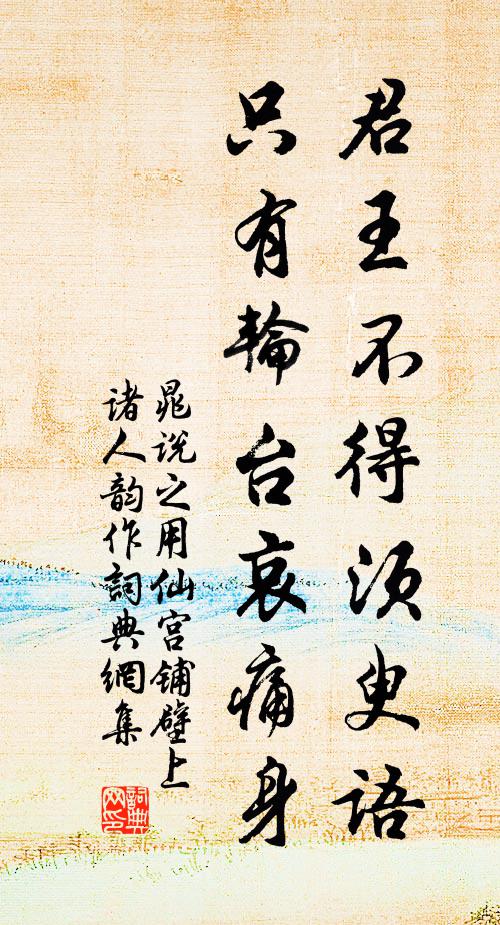 君王不得須臾語
只有輪台哀痛身
晁说之用仙宫铺壁上
诸人韵作詞典網集
詞典